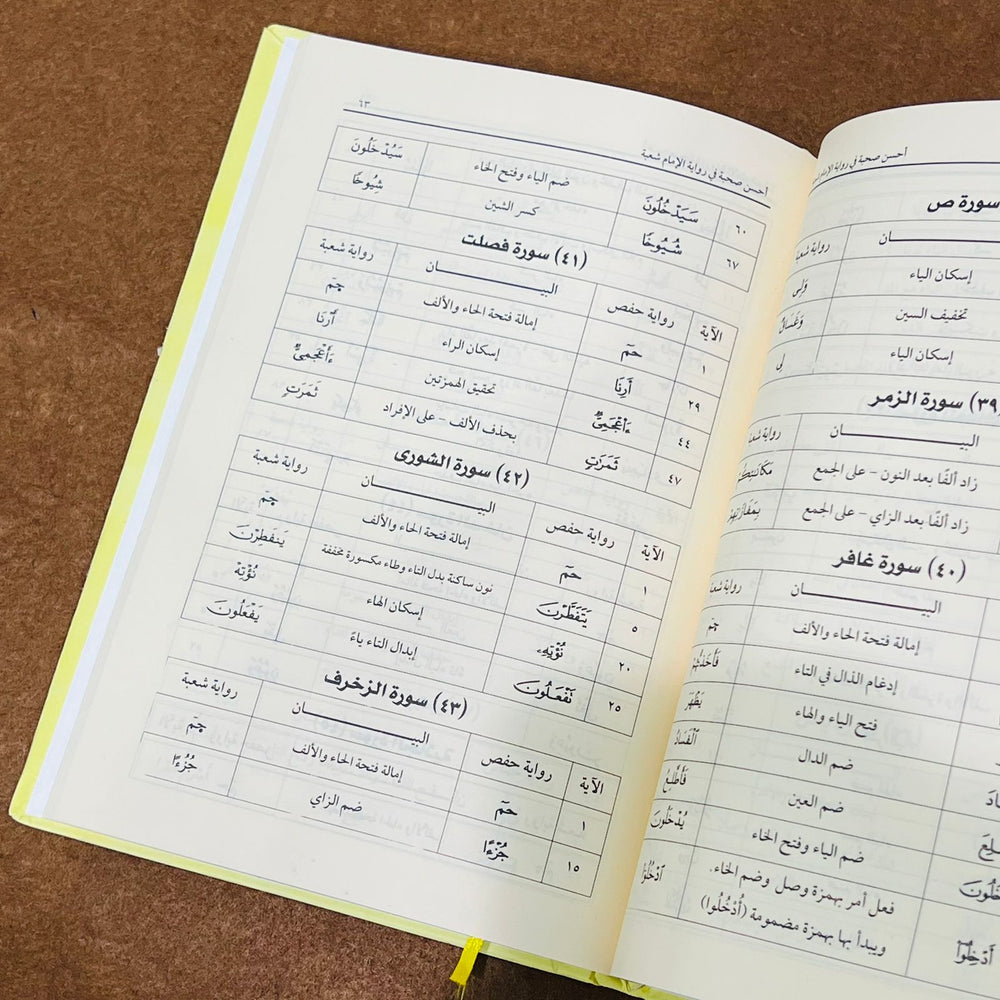 أحسن صحبة في رواية الإمام شعبة
سورة ص
البيـــــــان رواية شعبة
إسكان الياء وَلِى
تخفيف السين وَغَسَاقٌ
إسكان الياء لِى
(٣٩) سورة الزمر
البيـــــــان رواية شعبة
زاد ألفًا بعد النون – على الجمع
زاد ألفًا بعد الزاي – على الجمع
(٤٠) سورة غافر
البيـــــــان رواية شعبة
إمالة فتحة الحاء والألف حٓمٓ
إدغام الذال في التاء
فتح الياء والهاء يَظْهَرَ
ضم الدال ٱلْفَسَادُ
ضم العين فَأَطَّلِعُ
ضم الياء وفتح الخاء يُدْخَلُونَ
أَدْخِلُوٓا۟ فعل أمر بهمزة وصل وضم الخاء. ٱدْخُلُوٓا۟
ويبدأ بها بهمزة مضمومة (أُدْخُلُوا)
أحسن صحبة في رواية الإمام شعبة ٦٣
٦٠ سَيَدْخُلُونَ ضم الياء وفتح الخاء سَيُدْخَلُونَ
٦٧ شُيُوخًا كسر الشين شِيُوخًا
(٤١) سورة فصلت
الآية رواية حفص البيـــــــان رواية شعبة
١ حٓمٓ إمالة فتحة الحاء والألف حٓمٓ
٢٩ أَرِنَا إسكان الراء أَرْنَا
٤٤ ءَا۬عْجَمِىٌّ تحقيق الهمزتين ءَأَعْجَمِىٌّ
٤٧ ثَمَرَٰتٍ بحذف الألف – على الإفراد ثَمَرَتٍ
(٤٢) سورة الشورى
الآية رواية حفص البيـــــــان رواية شعبة
١ حٓمٓ إمالة فتحة الحاء والألف حٓمٓ
٥ يَتَفَطَّرْنَ نون ساكنة بدل التاء وطاء مكسورة مخففة يَنفَطِرْنَ
٢٠ نُؤْتِهِۦ إسكان الهاء نُؤْتِهْ
٢٥ تَفْعَلُونَ إبدال التاء ياءً يَفْعَلُونَ
(٤٣) سورة الزخرف
الآية رواية حفص البيـــــــان رواية شعبة
١ حٓمٓ إمالة فتحة الحاء والألف حٓمٓ
١٥ جُزْءًا ضم الزاي جُزُءًا